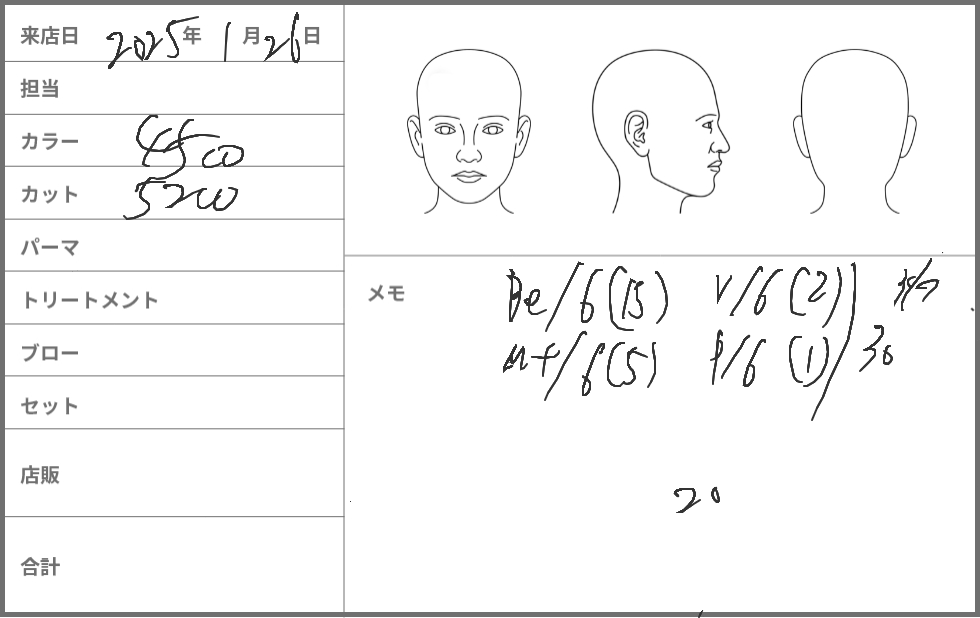 来店日 2025年 1月26日
担当
カラー 4500
カット 5200
パーマ
トリートメント
ブロー
セット
店販
合計
メモ
Be/6(15) V/6(2)
Mt/6(5) P/6(1)/30
20